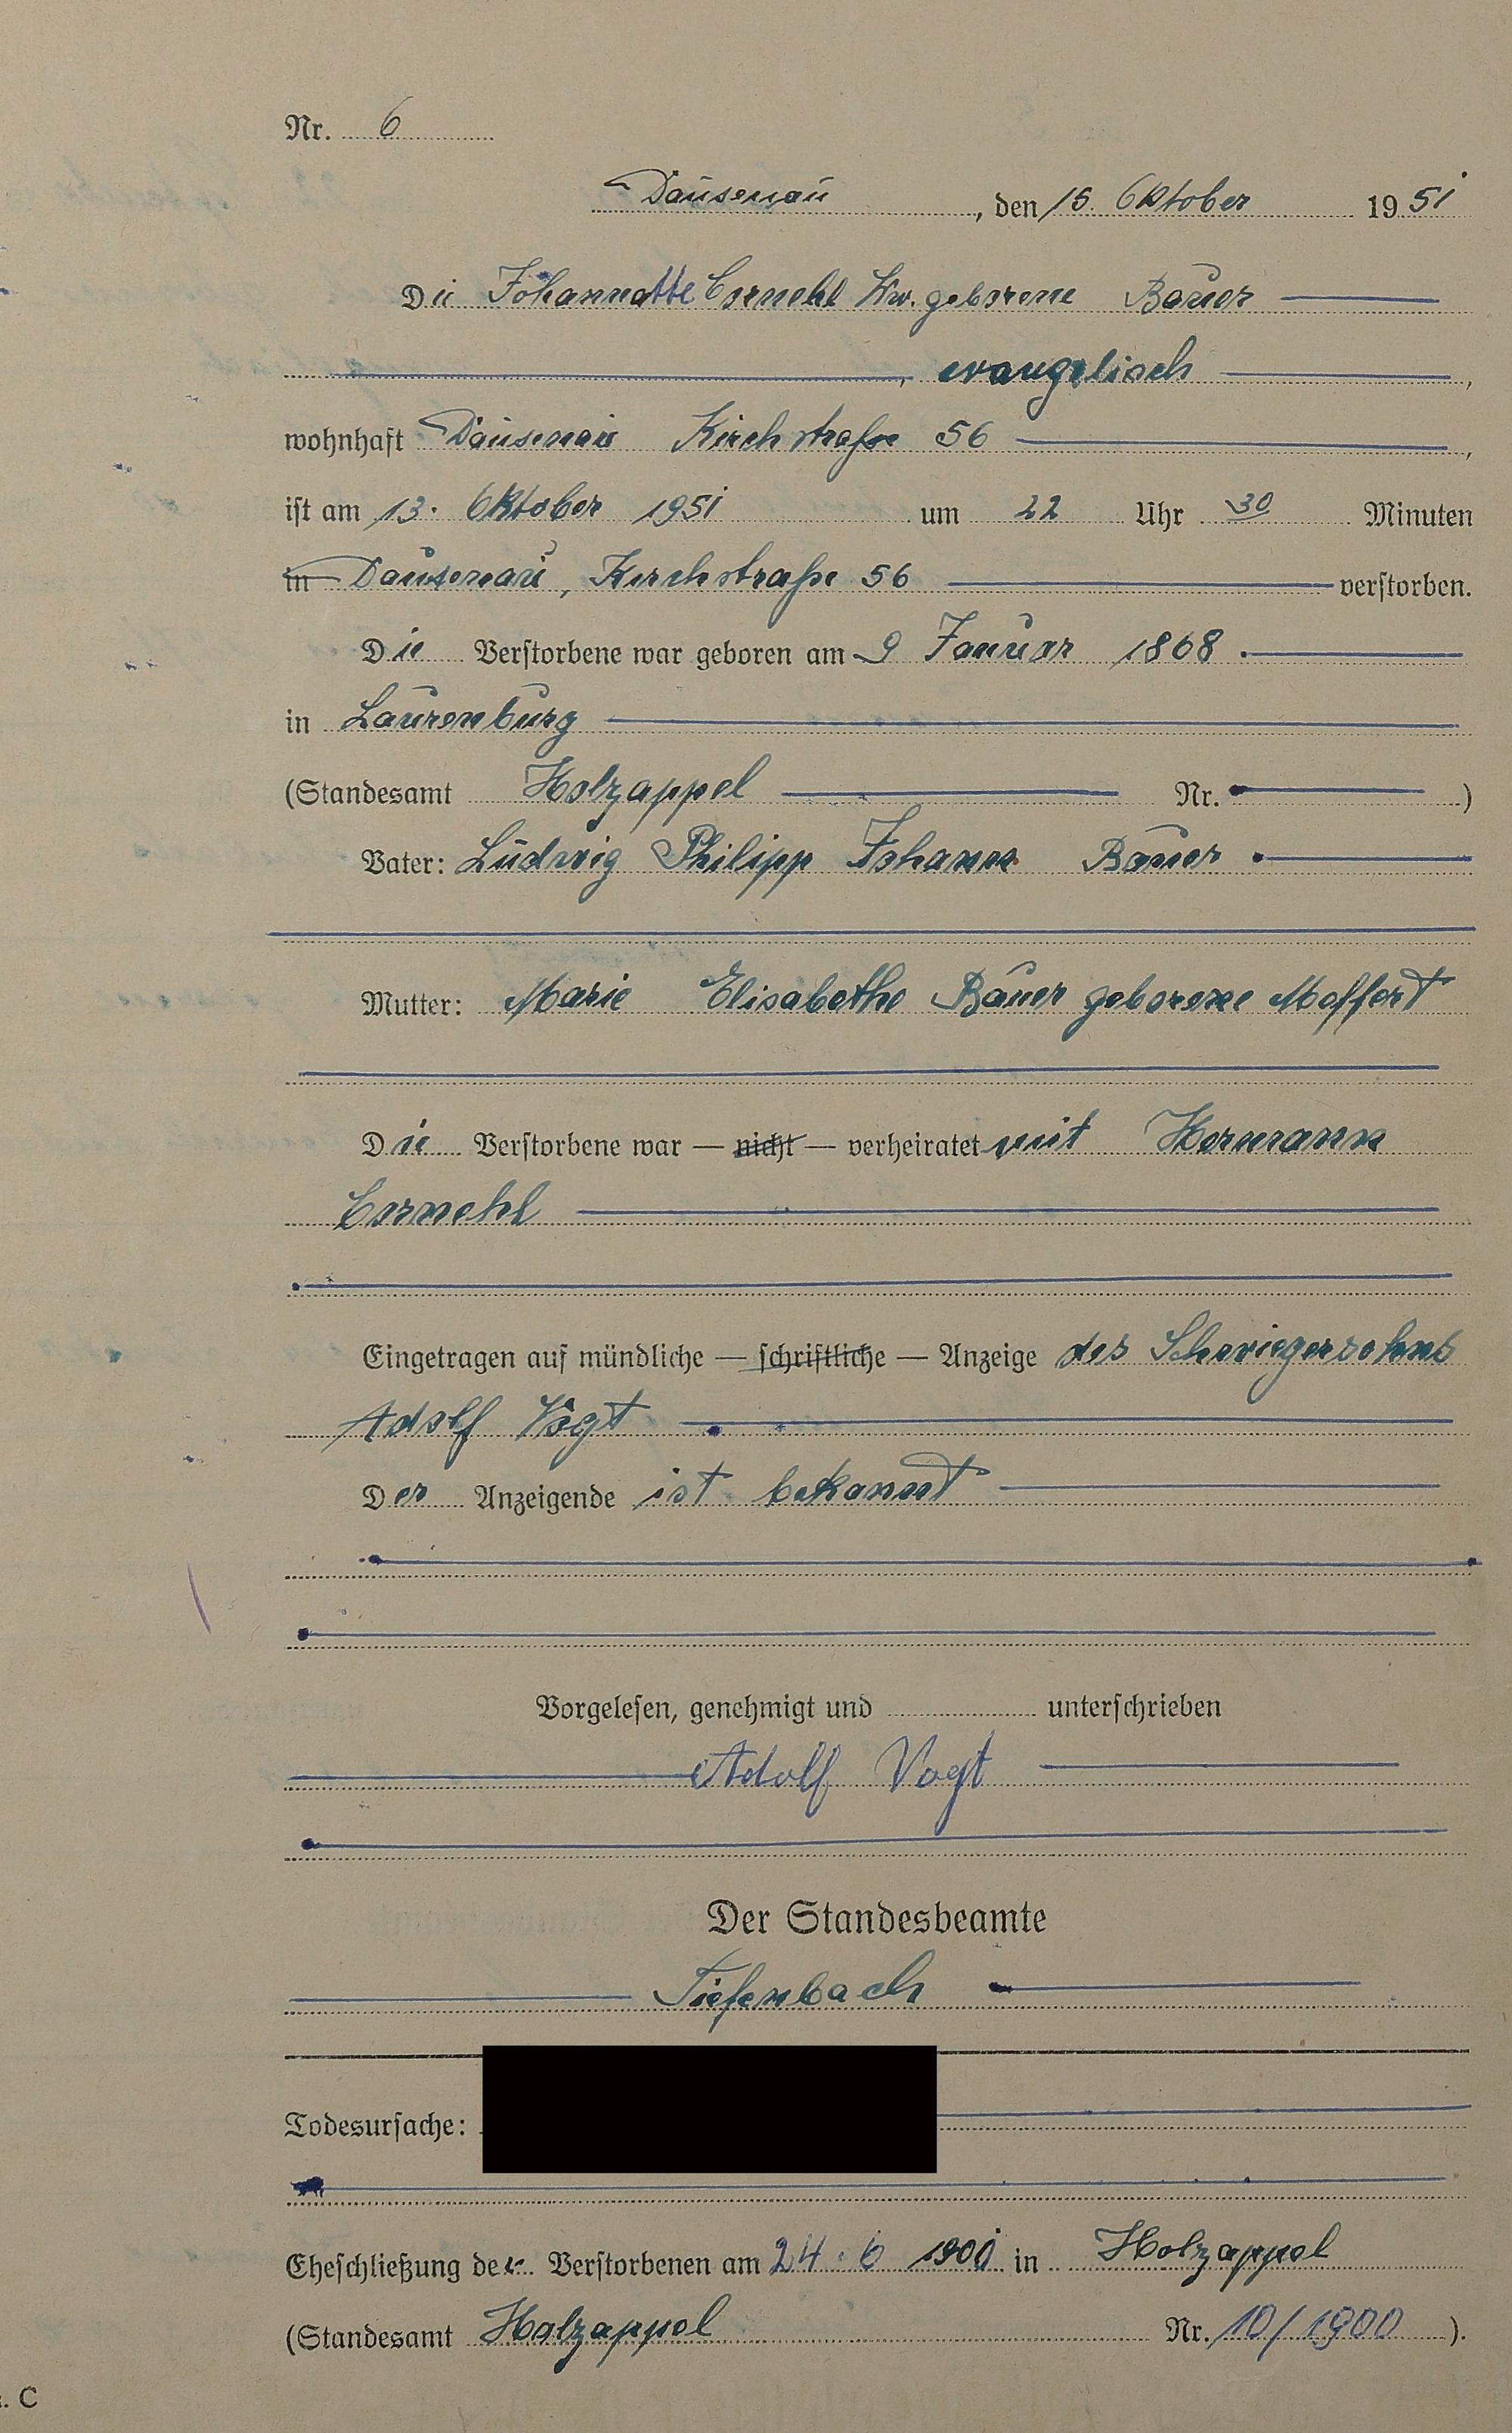 Nr. 6
Dausenau, den 15. Oktober 1951
Die Johannette Cornehl Ww. geborene Bauer
, evangelisch,
wohnhaft Dausenau Kirchstraße 56,
ist am 13. Oktober 1951 um 22 Uhr 30 Minuten
in Dausenau, Kirchstraße 56 verstorben.
Die Verstorbene war geboren am 9 Januar 1868.
in Laurenburg
(Standesamt Holzappel Nr. )
Vater: Ludwig Philipp Johann Bauer.
Mutter: Marie Elisabethe Bauer geborene Meffert
Die Verstorbene war — nicht — verheiratet mit Hermann
Cornehl
Eingetragen auf mündliche — schriftliche — Anzeige des Schwiegersohns
Adolf Vogt
Der Anzeigende ist bekannt
Vorgelesen, genehmigt und unterschrieben
Adolf Vogt
Der Standesbeamte
Tiefenbach
Todesursache:
Eheschließung der Verstorbenen am 24.6 in Holzappel
(Standesamt Holzappel Nr. 10/1900 ).
. C